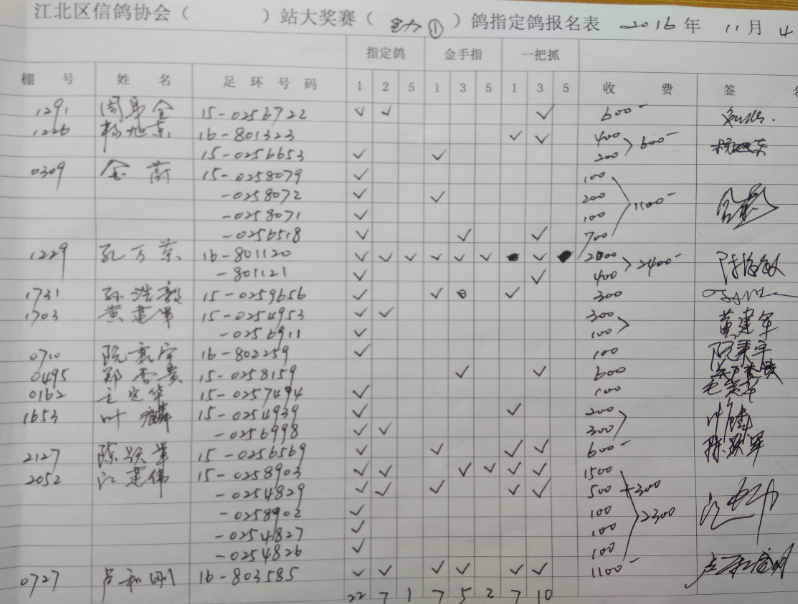 江北区信鸽协会（ ）站大奖赛（ ①）鸽指定鸽报名表 2016年 11月 4
指定鸽 金手指 一把抓
棚号 姓名 足环号码 1 2 5 1 3 5 1 3 5 收费 签名
1291 15-0256722 ✓ ✓ ✓ 600-
1226 杨旭东 16-801323 ✓ ✓ 400
15-0256653 ✓ ✓ 200 600-
0309 金蔚 15-0258079 ✓ 100
-0258072 ✓ ✓ 200
-0258071 ✓ 100 1100-
-0256518 ✓ ✓ ✓ 700
1229 孔万荣 16-801120 ✓ ✓ ✓ ✓ ✓ ✓ ✓ 2000
-801121 ✓ ✓ 400 2400-
1731 孙浩毅 15-0259656 ✓ ✓ ✓ 300
1703 黄建军 15-0254953 ✓ ✓ 300 黄建军
-0256911 ✓ 100
0710 阮秉宇 16-802259 ✓ 100 阮秉宇
0495 郑杏贵 15-0258159 ✓ ✓ 600
0162 15-0257494 ✓ 100
1653 叶麟 15-0254939 ✓ ✓ 200
-0256998 ✓ ✓ 300
2127 陈跃军 15-0256569 ✓ ✓ ✓ ✓ 600- 陈跃军
2052 江建伟 15-0258903 ✓ ✓ ✓ ✓ ✓ ✓ 1500
-0254829 ✓ ✓ ✓ ✓ ✓ 500
-0258902 ✓ 100 2300
-0254827 ✓ 100
-0254826 ✓ 100
0727 卢和刚 16-803585 ✓ ✓ ✓ ✓ ✓ ✓ 1100-
22 7 1 7 5 2 7 10